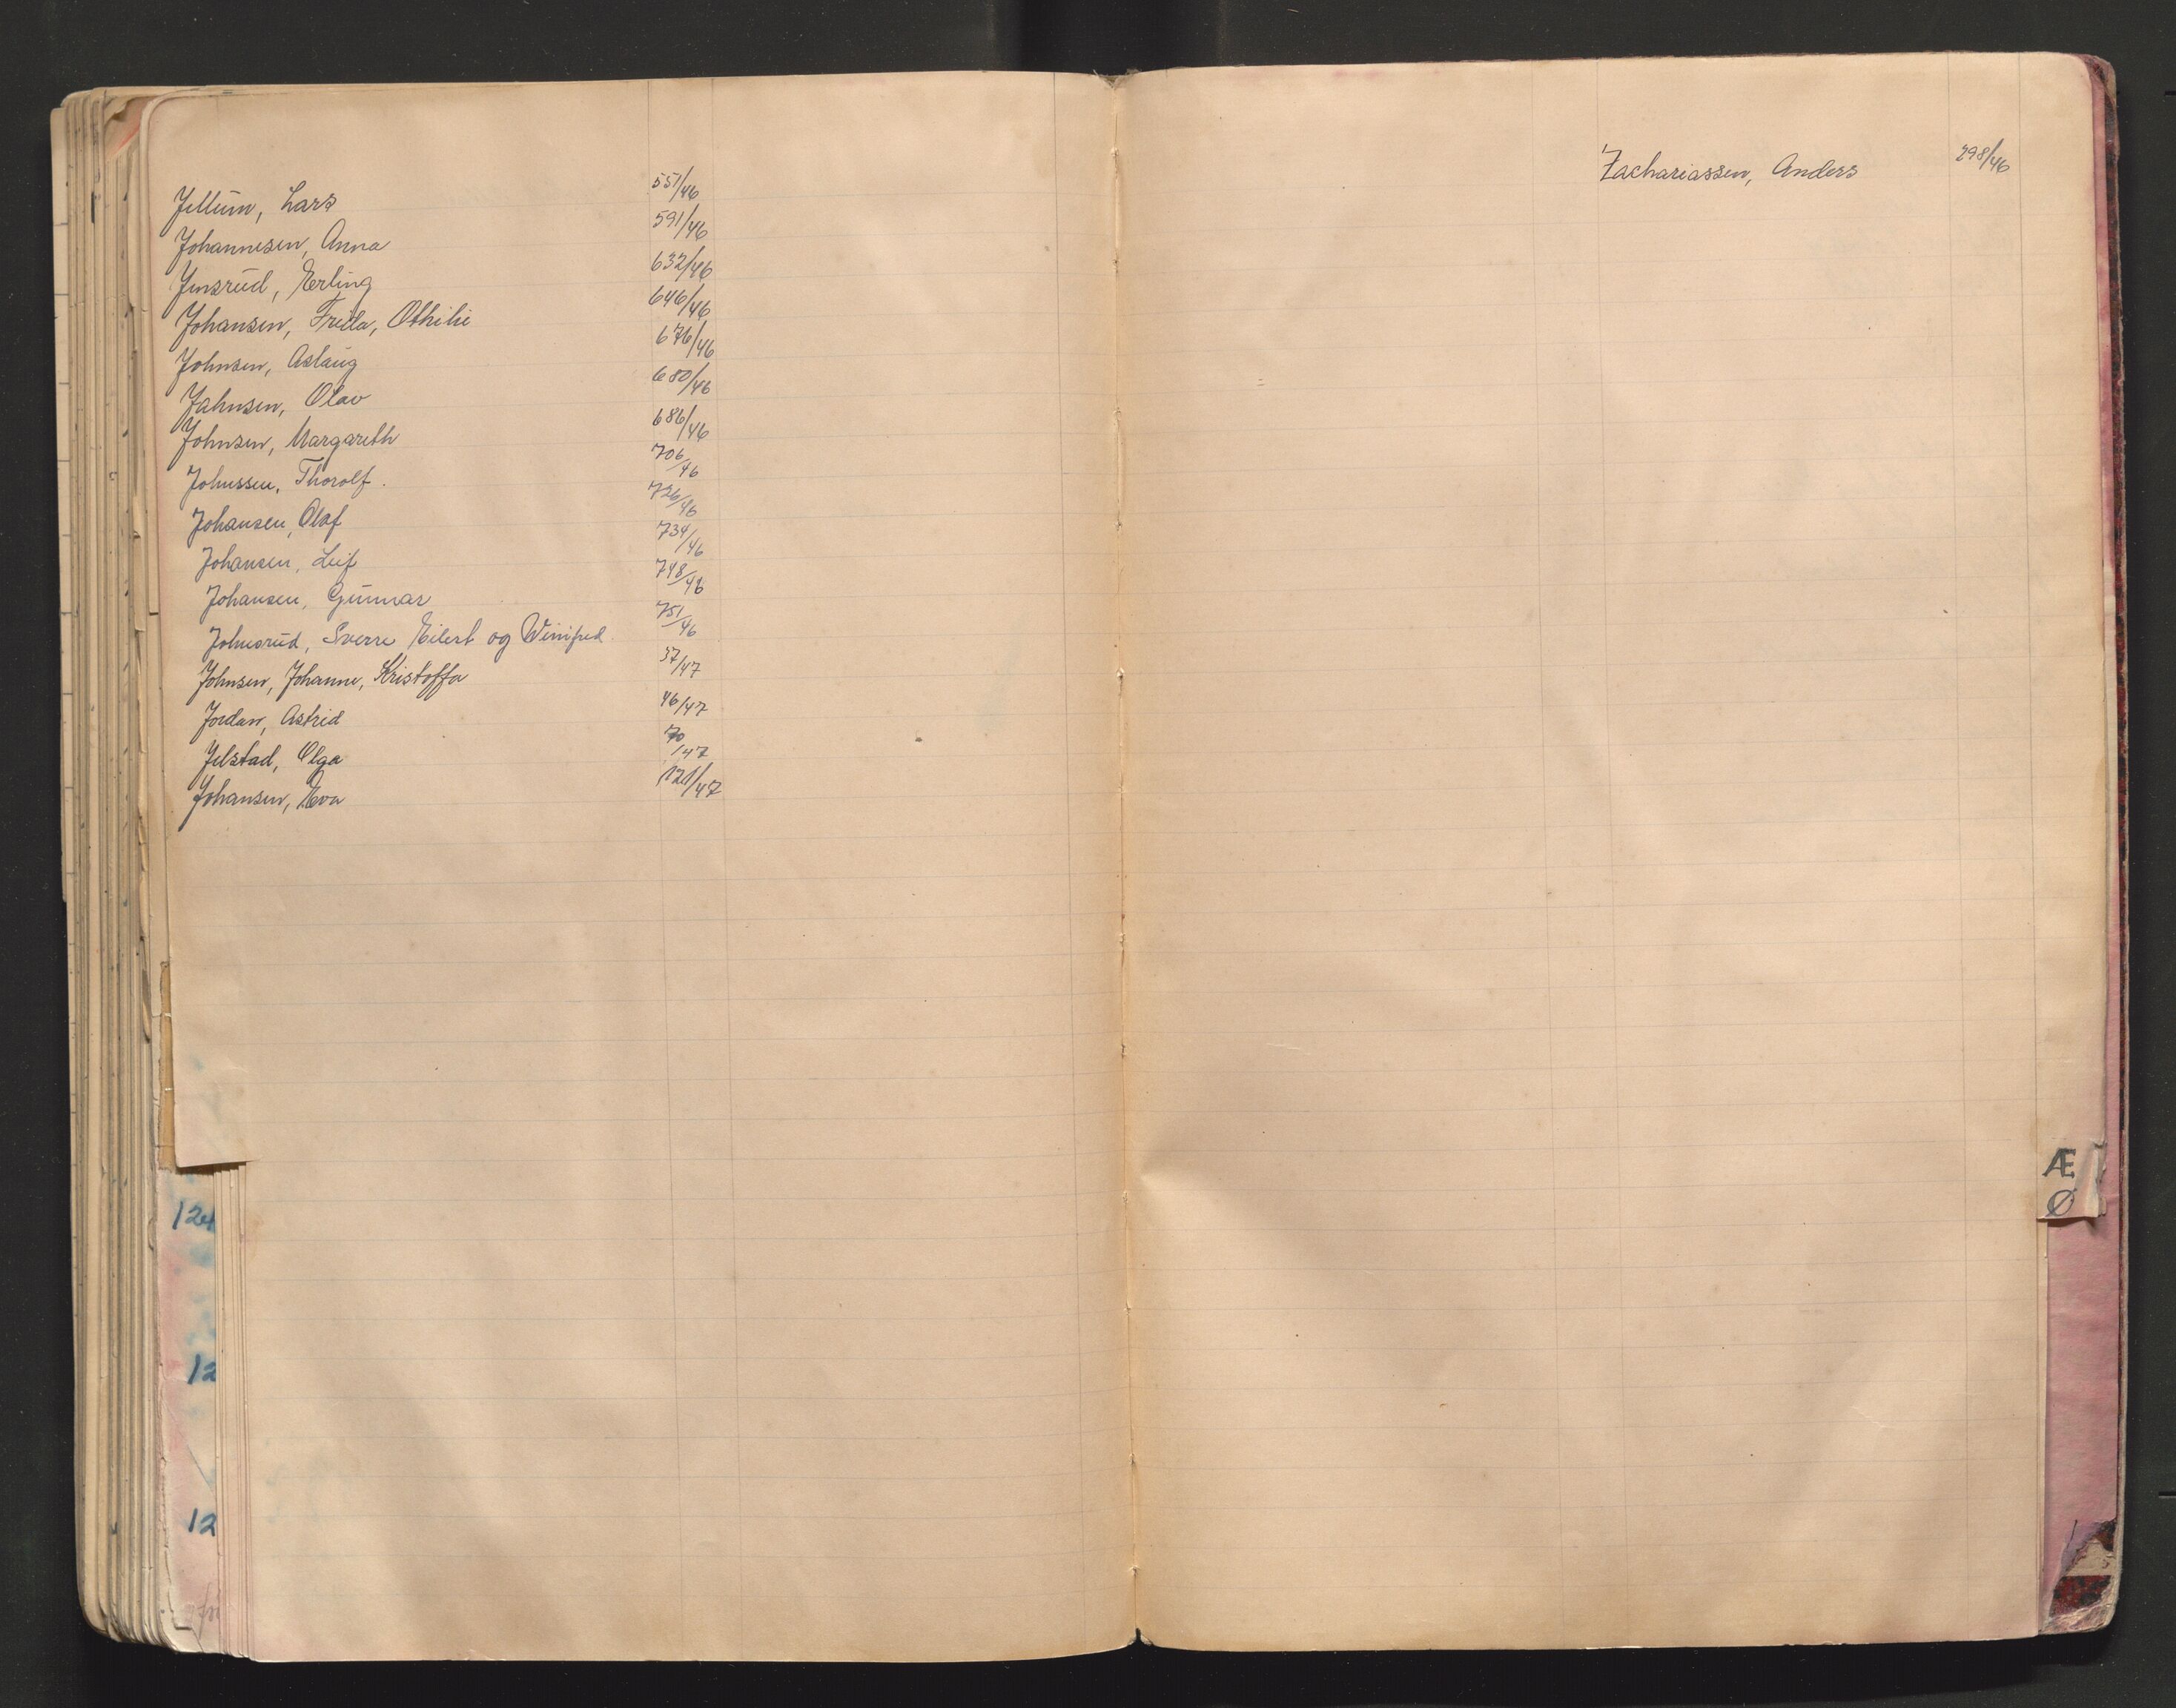 Jellum, Lars 551/46
Johannesen, Anna 591/46
Jensrud, Erling 632/46
Johansen, Frida, Othilie 646/46
Johnsen, Aslaug 676/46
Jahnsen, Olav 680/46
Johnsen, Margareth 686/46
Johnssen, Thorolf. 706/46
Johansen, Olaf 726/46
Johansen, Leif 734/46
Johansen, Gunnar 748/46
Johnsrud, Sverre Eilert og Winifred 751/46
Johnsen, Johanne, Kristoffa 37/47
Jordan, Astrid 46/47
Jelstad, Olga 70/47
Johansen, Eva 121/47
124
12
12
Zachariassen, Anders 298/46
Æ
Ø